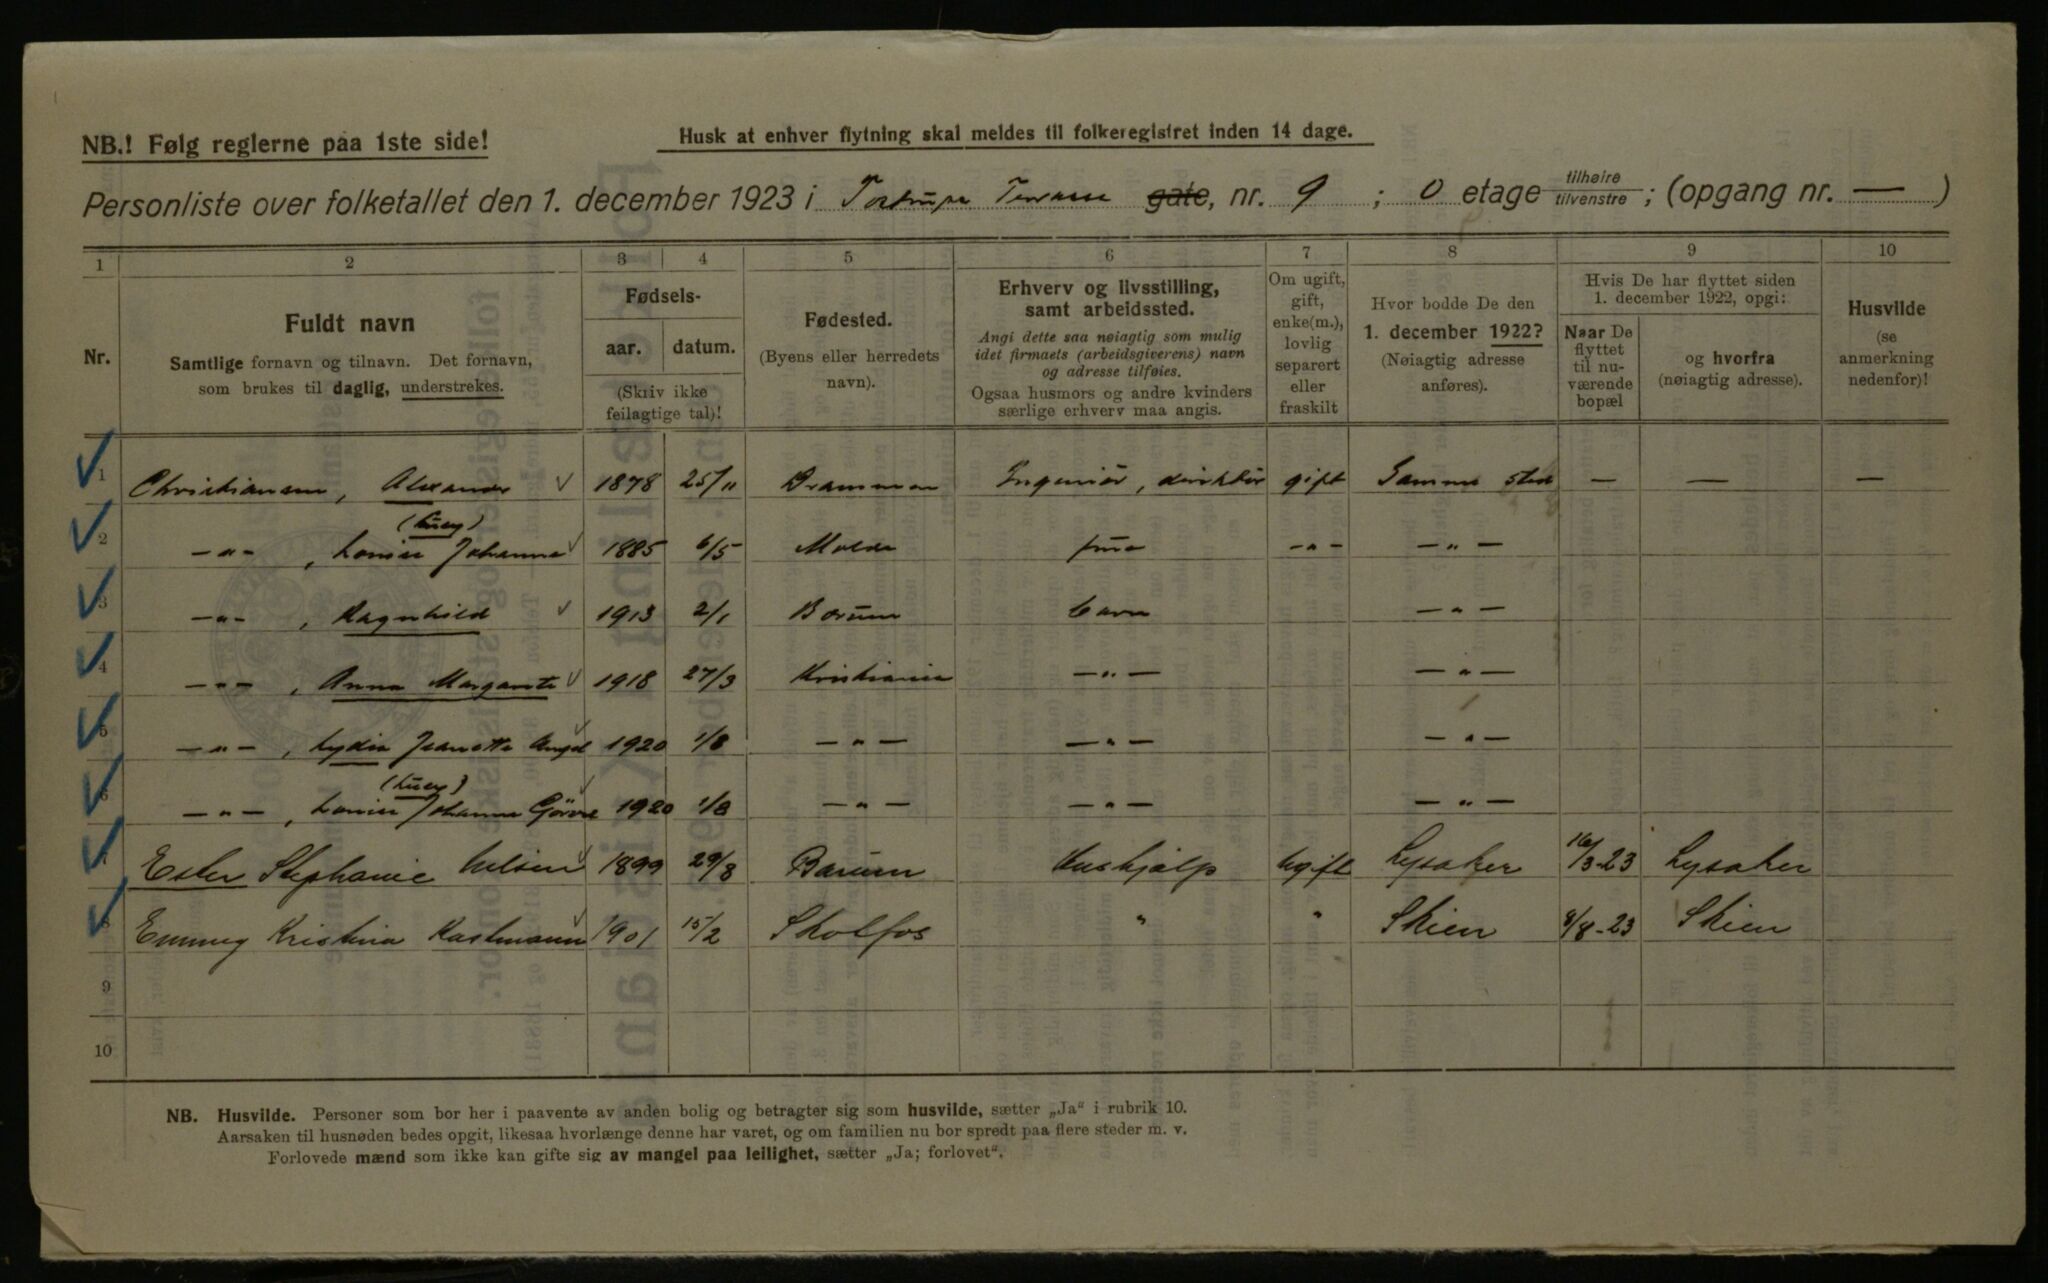 NB.! Følg reglerne paa 1ste side!
Husk at enhver flytning skal meldes til folkeregistret inden 14 dage.
Personliste over folketallet den 1. december 1923 i Tostrups Terrasse gate, nr. 9 ; 0 etage tilhøire tilvenstre ; (opgang nr. — )
1 2 3 4 5 6 7 8 9 10
Nr.
Fuldt navn
Samtlige fornavn og tilnavn. Det fornavn,
som brukes til daglig, understrekes.
Fødsels-
aar. datum.
(Skriv ikke
feilagtige tal)!
Fødested.
(Byens eller herredets
navn).
Erhverv og livsstilling,
samt arbeidssted.
Angi dette saa nøiagtig som mulig
idet firmaets (arbeidsgiverens) navn
og adresse tilføies.
Ogsaa husmors og andre kvinders
særlige erhverv maa angis.
Om ugift,
gift,
enke(m.),
lovlig
separert
eller
fraskilt
Hvor bodde De den
1. december 1922?
(Nøiagtig adresse
anføres).
Hvis De har flyttet siden
1. december 1922, opgi:
Naar De
flyttet
til nu-
værende
bopæl
og hvorfra
(nøiagtig adresse).
Husvilde
(se
anmerkning
nedenfor)!
1 Christiansen, Alexander 1878 25/11 Drammen Ingeniör, direktör gift Samme sted — — —
(Lucy)
2 —"— , Louise Johanne 1885 6/5 Molde frue —"— —"—
3 —"— , Ragnhild 1913 2/1 Bærum barn —"—
4 —"— , Anna Margarete 1918 27/3 Kristiania —"— —"—
5 —"— , Lydia Jeanette Angel 1920 1/8 —"— —"— —"—
(Lucy)
6 —"— , Louise Johanne 1920 1/8 —"— —"— —"—
7 Ester Stephanie Nilsen 1899 29/8 Bærum Hushjælp Ugift Lysaker 16/3-23 Lysaker
8 Emmy Kristina Kastmann 1901 15/2 Skotfos " " Skien 8/8-23 Skien
9
10
NB. Husvilde. Personer som bor her i paavente av anden bolig og betragter sig som husvilde, sætter „Ja" i rubrik 10.
Aarsaken til husnøden bedes opgit, likesaa hvorlænge denne har varet, og om familien nu bor spredt paa flere steder m. v.
Forlovede mænd som ikke kan gifte sig av mangel paa leilighet, sætter „Ja; forlovet".